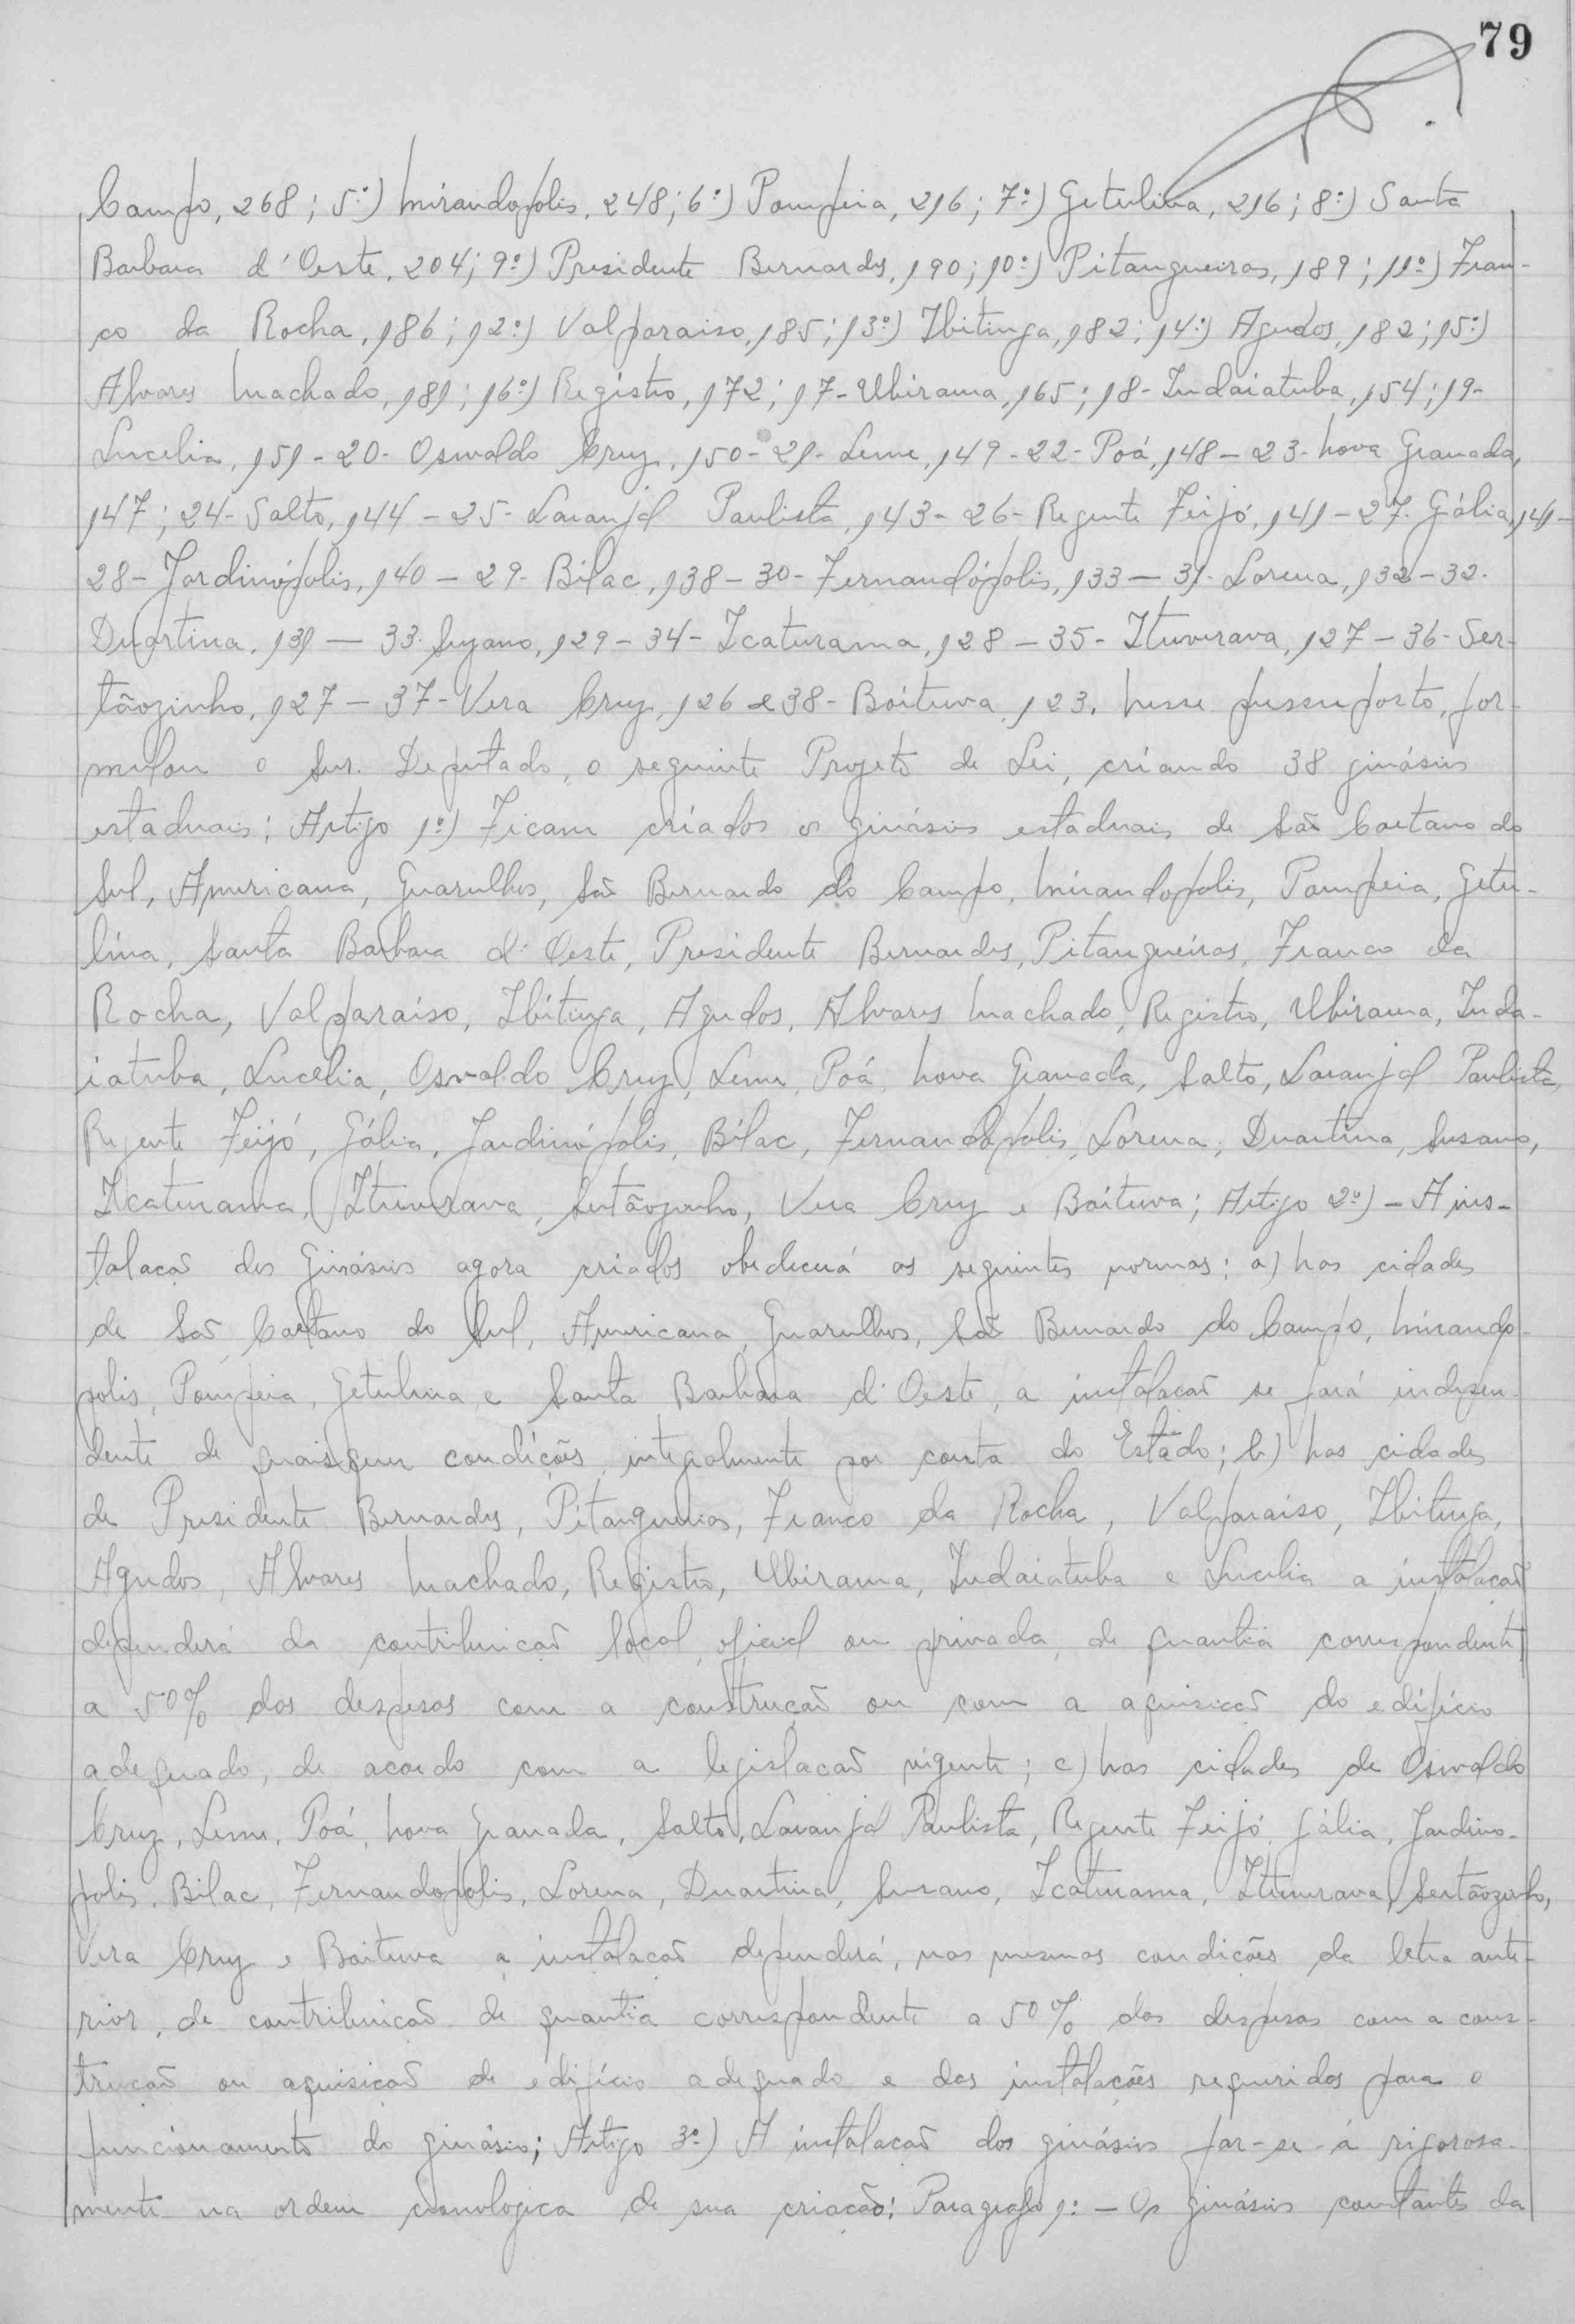 79
Campo, 268; 5º) Mirandopolis, 248; 6º) Pompeia, 216; 7º) Getulina, 216; 8º) Santa
Barbara d'Oeste, 204; 9º) Presidente Bernardes, 190; 10º) Pitangueiras, 189; 11º) Fran-
co da Rocha, 186; 12º) Valparaiso, 185; 13º) Ibitinga, 182; 14º) Agudos, 182; 15º)
Alvares Machado, 181; 16º) Registro, 172; 17- Ubirama, 165; 18- Indaiatuba, 154; 19-
Lucelia, 151 - 20- Oswaldo Cruz, 150 - 21- Leme, 149 - 22- Poá, 148 - 23- Nova Granada,
147; 24- Salto, 144 - 25- Laranjal Paulista, 143 - 26- Regente Feijó, 141 - 27- Gália, 141 -
28- Jardinópolis, 140 - 29- Bilac, 138 - 30- Fernandópolis, 133 - 31- Lorena, 132 - 32-
Duartina, 131 - 33- Suzano, 129 - 34- Icaturama, 128 - 35- Ituverava, 127 - 36- Ser-
tãozinho, 127 - 37- Vera Cruz, 126 e 38- Boituva, 123. Nesse pressuposto, for-
mulou o Snr. Deputado, o seguinte Projeto de Lei, criando 38 ginásios
estaduais: Artigo 1º) Ficam criados os ginásios estaduais de São Caetano do
Sul, Americana, Guarulhos, São Bernardo do Campo, Mirandopolis, Pompeia, Getu-
lina, Santa Barbara d'Oeste, Presidente Bernardes, Pitangueiras, Franco da
Rocha, Valparaiso, Ibitinga, Agudos, Alvares Machado, Registro, Ubirama, Inda-
iatuba, Lucélia, Osvaldo Cruz, Leme, Poá, Nova Granada, Salto, Laranjal Paulista,
Regente Feijó, Gália, Jardinópolis, Bilac, Fernandópolis, Lorena, Duartina, Susano,
Icaturama, Ituverava, Sertãozinho, Vera Cruz e Boituva; Artigo 2º) - A ins-
talacão dos Ginásios agora criados obedecerá as seguintes normas: a) Nas cidades
de São Caetano do Sul, Americana, Guarulhos, São Bernardo do Campo, Mirando-
polis, Pompeia, Getulina e Santa Barbara d'Oeste, a instalacão se fará indepen-
dente de quaisquer condições, integalmente por conta do Estado; b) Nas cidades
de Presidente Bernardes, Pitangueiras, Franco da Rocha, Valparaiso, Ibitinga,
Agudos, Alvares Machado, Registro, Ubirama, Indaiatuba e Lucelia a instalacão
dependerá da contribuicão local, oficial ou privada, de quantia correspondente
a 50% das despesas com a construção ou com a aquisicão do edifício
adequado, de acordo com a legislacão vigente; c) Nas cidades de Oswaldo
Cruz, Leme, Poá, Nova Granada, Salto, Laranjal Paulista, Regente Feijó, Gália, Jardino-
polis, Bilac, Fernandopolis, Lorena, Duartina, Susano, Icaturama, Ituverava, Sertãozinho,
Vera Cruz e Boituva a instalacão dependerá, nas mesmas condições da letra ante-
rior, de contribuicão de quantia correspondente a 50% das despesas com a cons-
trucão ou aquisicão de edifício adequado e das instalações requeridas para o
funcionamento do ginásio; Artigo 3º) A instalacão dos ginásios far-se-á rigorosa-
mente na ordem cronologica de sua criacão: Paragrafo 1º - Os ginásios constantes da